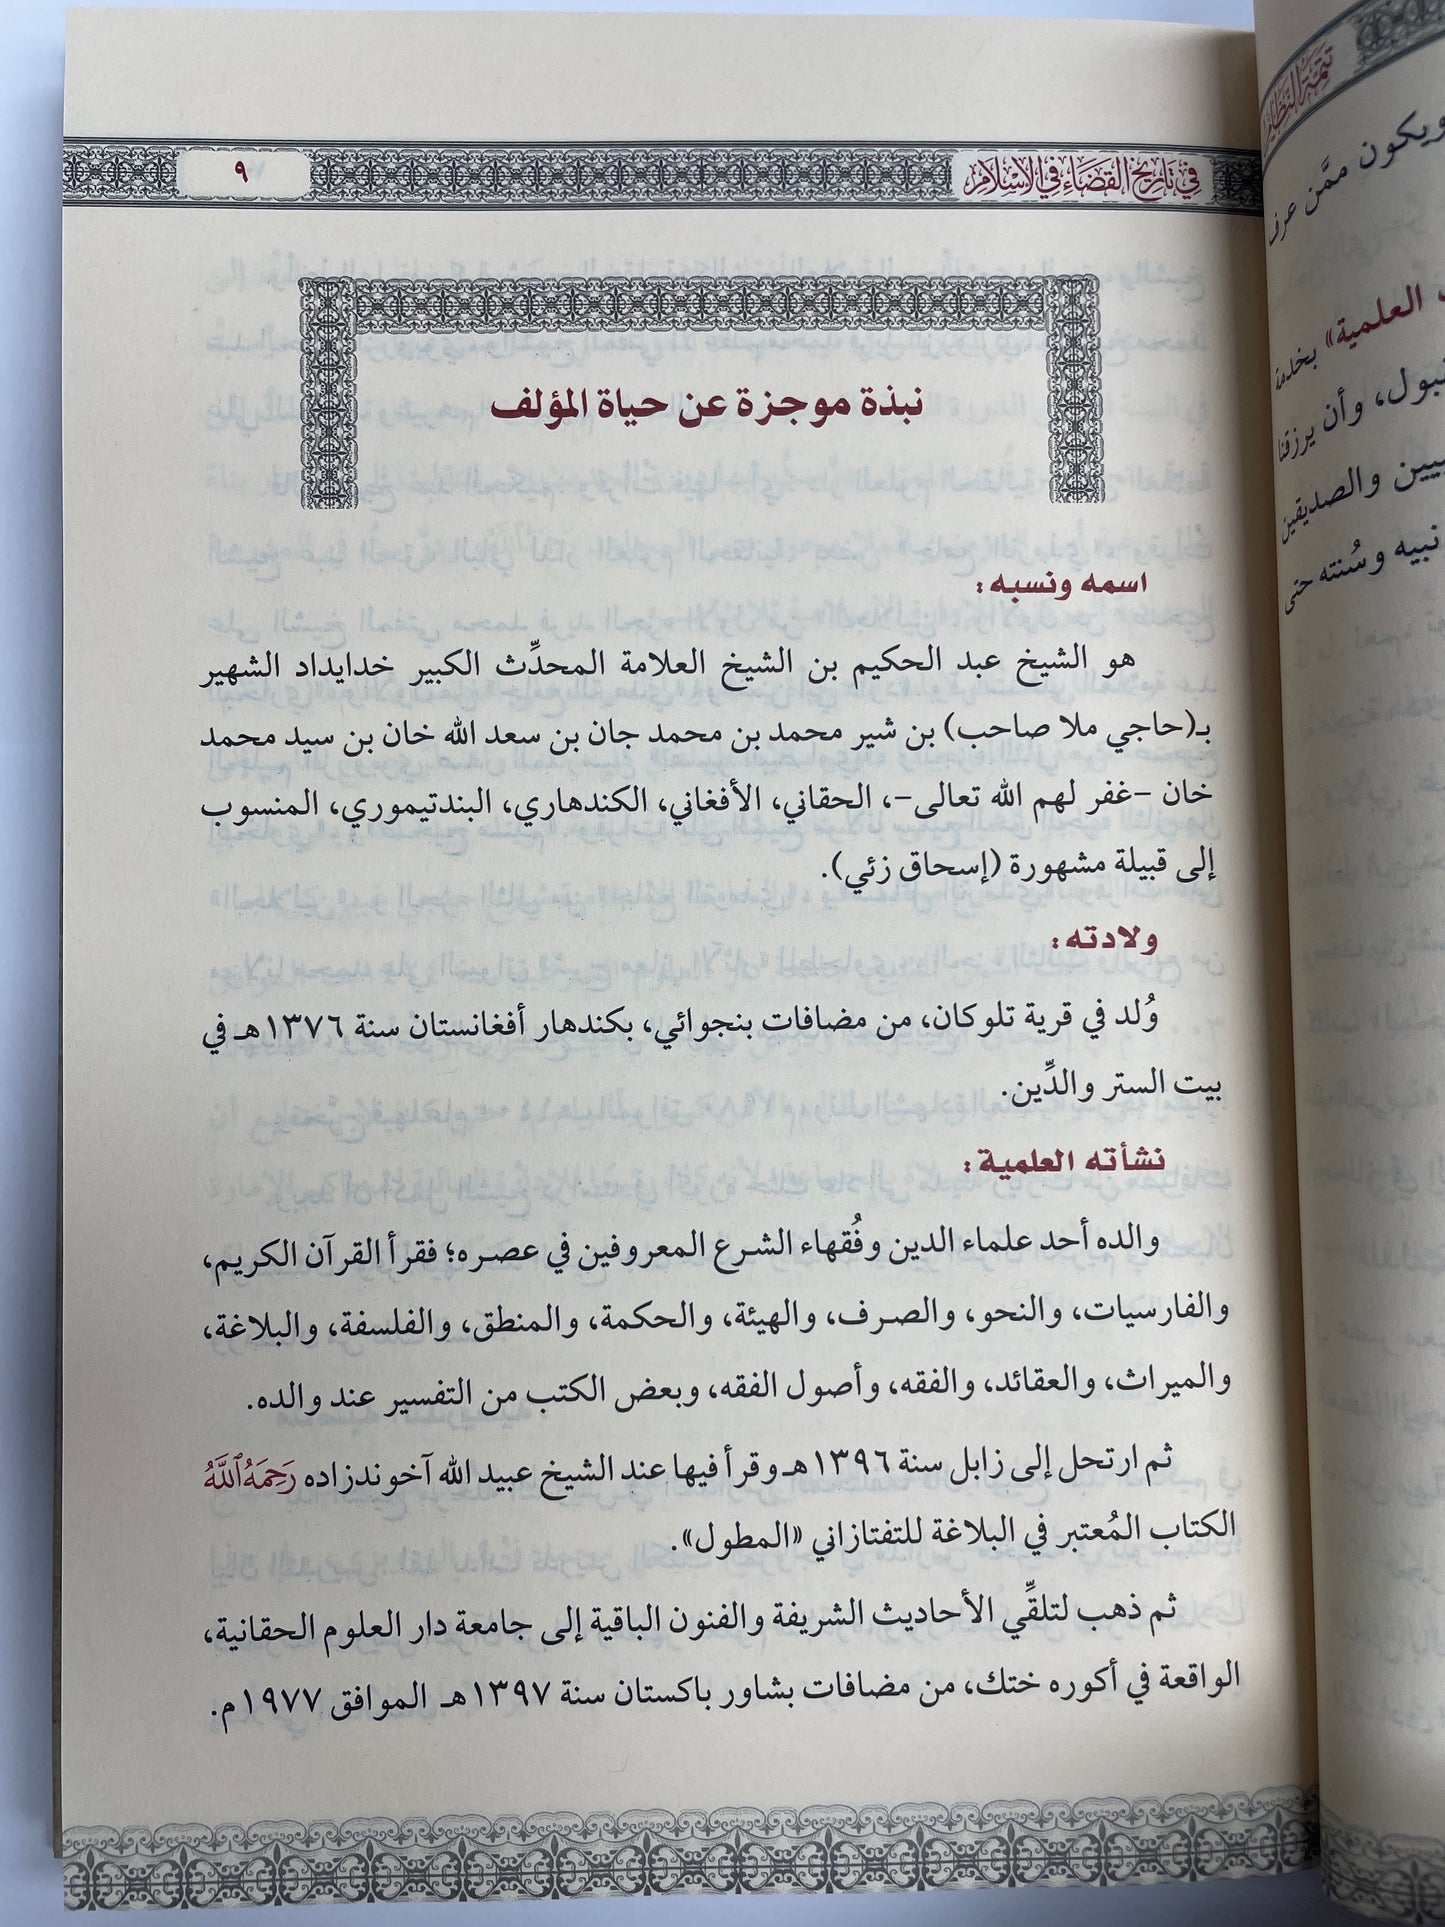 في تاريخ القضاء في الإسلام
٩
نبذة موجزة عن حياة المؤلف
اسمه ونسبه:
هو الشيخ عبد الحكيم بن الشيخ العلامة المحدِّث الكبير خدايداد الشهير
بـ(حاجي ملا صاحب) بن شير محمد بن محمد جان بن سعد الله خان بن سيد محمد
خان –غفر لهم الله تعالى–، الحقاني، الأفغاني، الكندهاري، البندتيموري، المنسوب
إلى قبيلة مشهورة (إسحاق زئي).
ولادته:
وُلد في قرية تلوكان، من مضافات بنجوائي، بكندهار أفغانستان سنة ١٣٧٦هـ في
بيت الستر والدِّين.
نشأته العلمية:
والده أحد علماء الدين وفُقهاء الشرع المعروفين في عصره؛ فقرأ القرآن الكريم،
والفارسيات، والنحو، والصرف، والهيئة، والحكمة، والمنطق، والفلسفة، والبلاغة،
والميراث، والعقائد، والفقه، وأصول الفقه، وبعض الكتب من التفسير عند والده.
ثم ارتحل إلى زابل سنة ١٣٩٦هـ وقرأ فيها عند الشيخ عبيد الله آخوندزاده رَحِمَهُ ٱللَّهُ
الكتاب المُعتبر في البلاغة للتفتازاني «المطول».
ثم ذهب لتلقِّي الأحاديث الشريفة والفنون الباقية إلى جامعة دار العلوم الحقانية،
الواقعة في أكوره ختك، من مضافات بشاور باكستان سنة ١٣٩٧هـ الموافق ١٩٧٧م.
ويكون ممَّن عرف
العلمية» بخدمة
وأن يرزقنا
والصديقين
نبيه وسُنته حتى